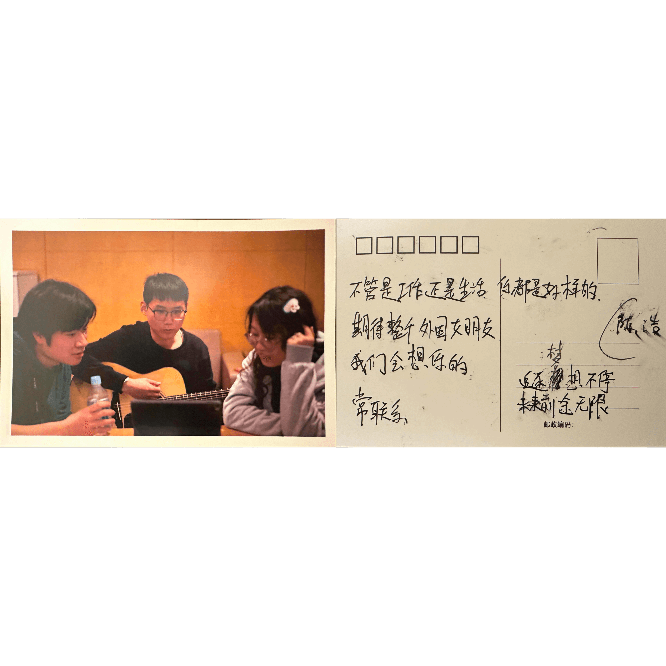 不管是工作还是生活 你都是好样的.
期待整个外国女朋友
我们会想你的
常联系.
陈浩
梦想不停
未来前途无限
邮政编码: